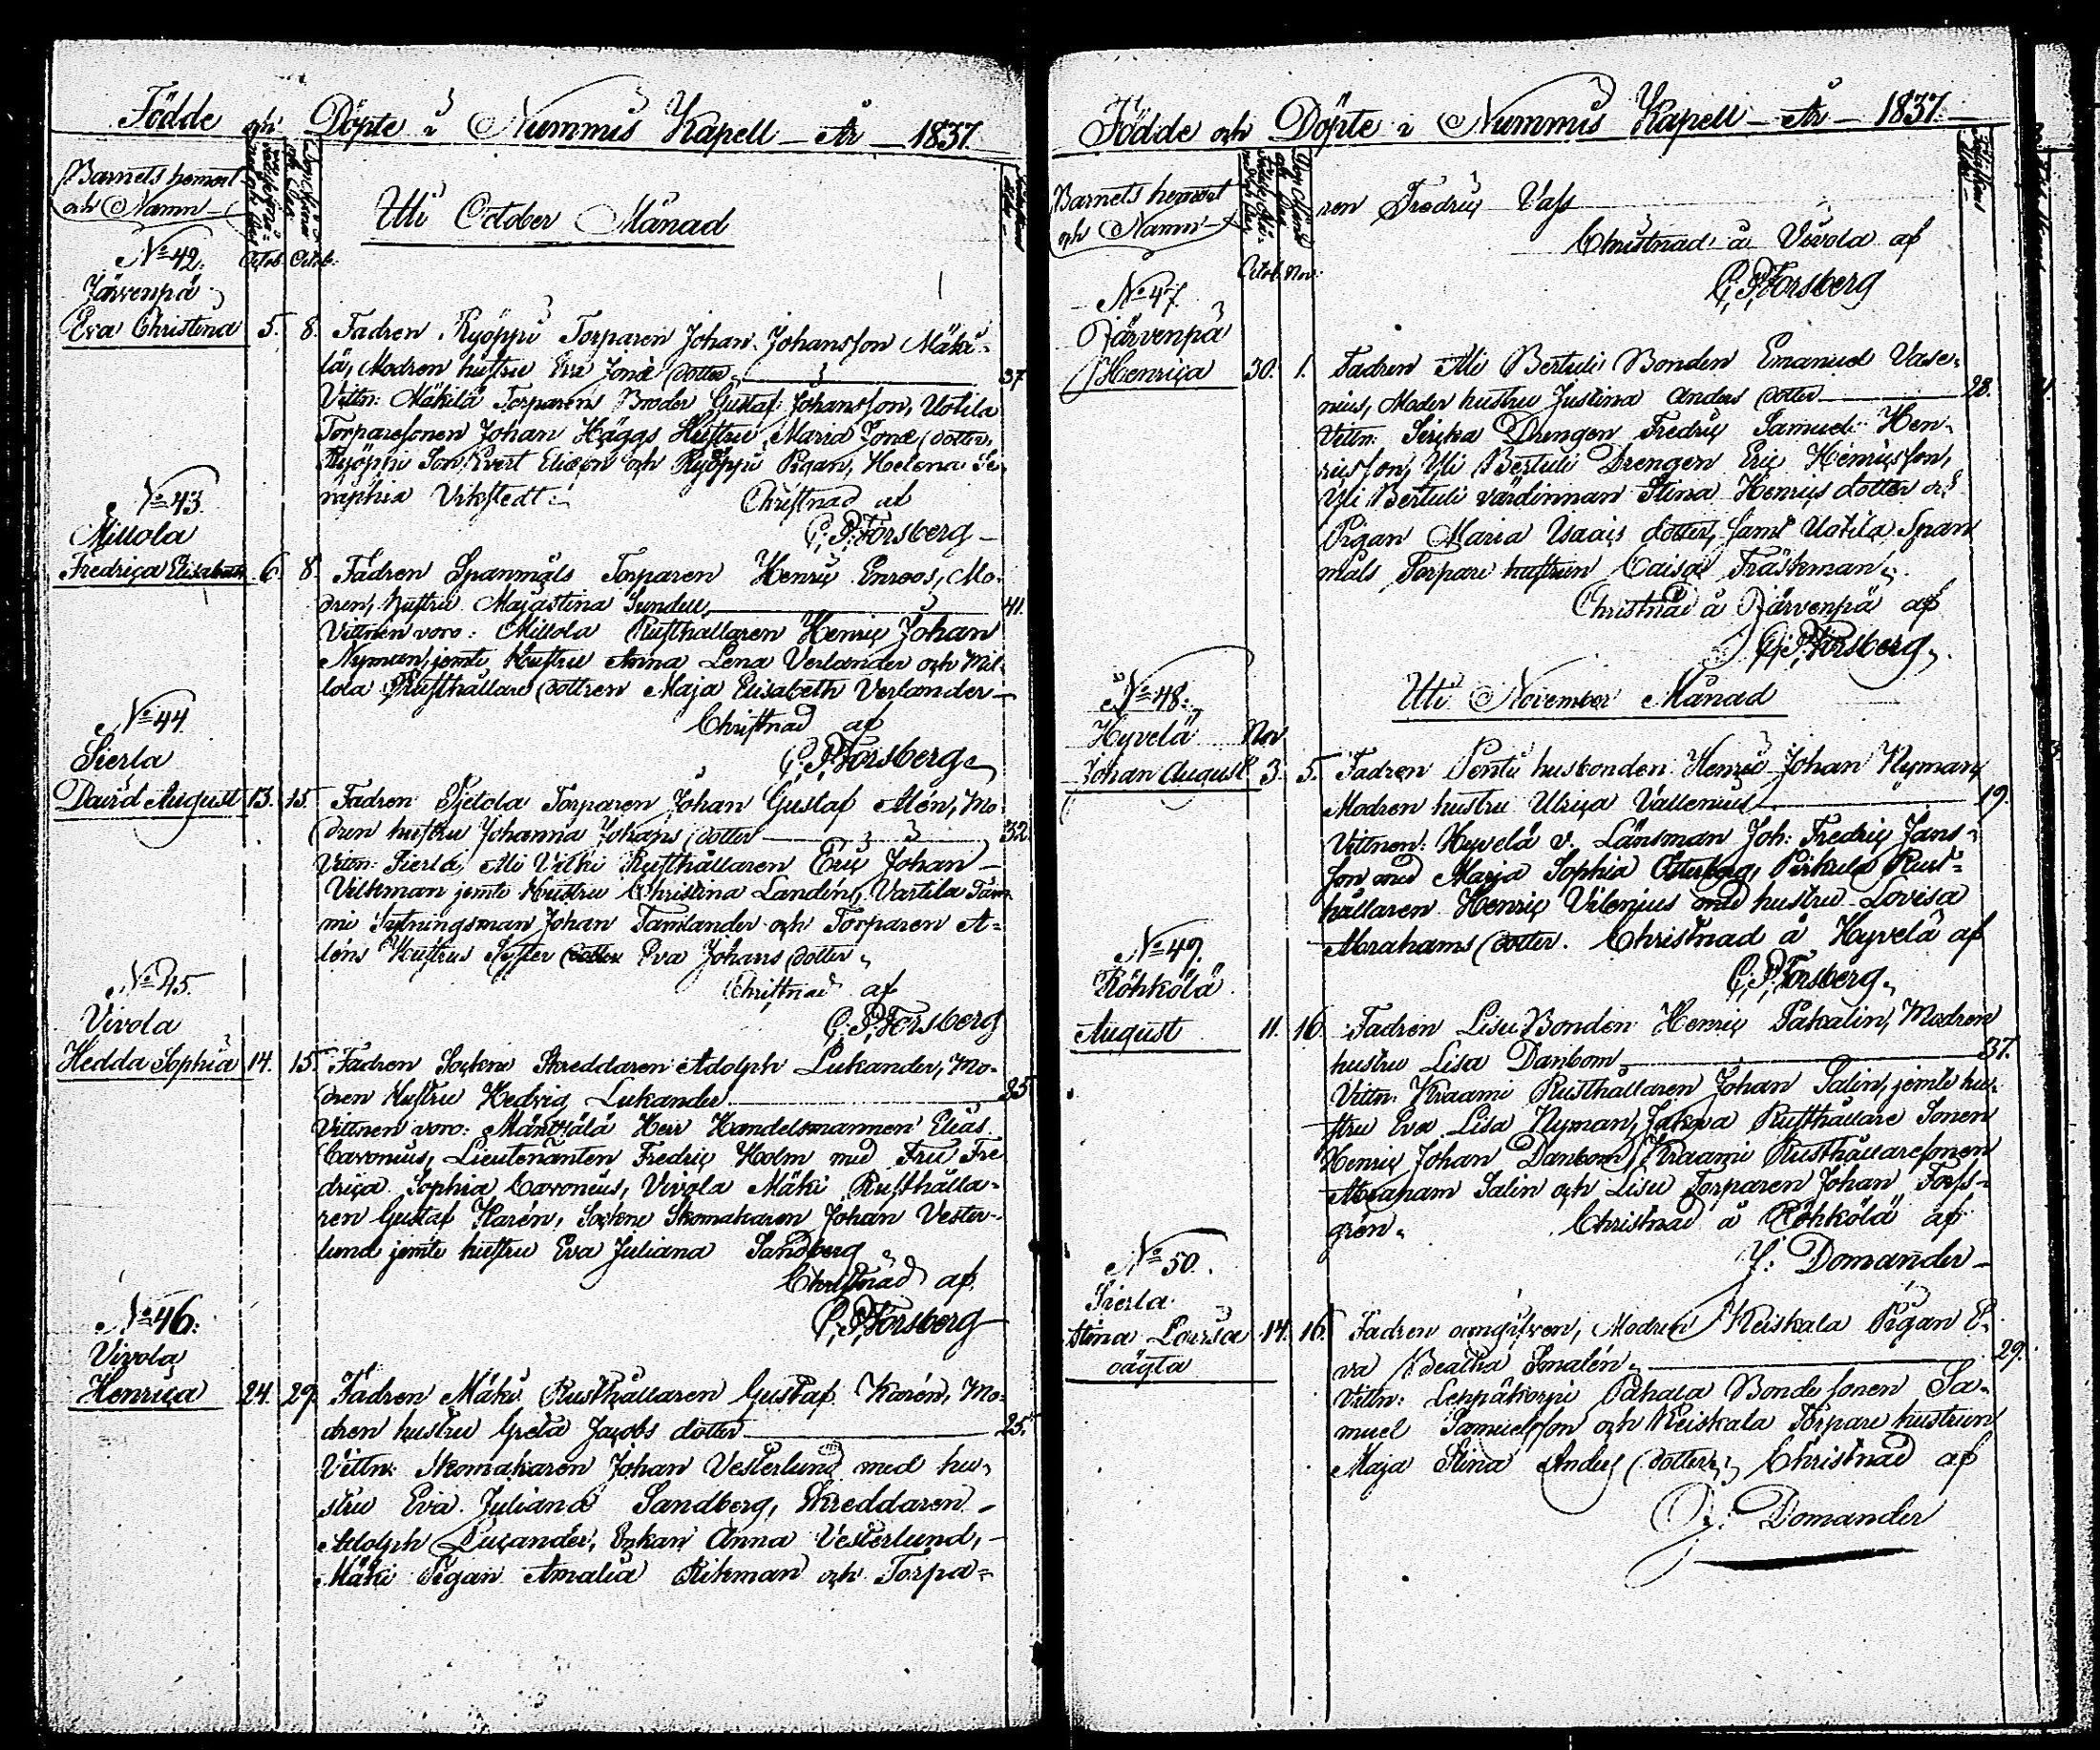 Födde och Döpte i Nummis Kapell – År – 1837.
Barnets hemort
och Namn
Uti October Månad
Octob. Octob.
No 42.
Järvenpä
Eva Christina 5. 8. Fadren Ryöppi Torparen Johan Johansson Mäki-
lä, Modren hustru Eva Jonæ dotter 37
Vittn: Mäkilä Torparens Broder Gustaf Johansson, Uotila
Torparesonen Johan Häggs Hustru Maria Jonæ dotter,
Ryöppi Son Evert Eliæson och Ryöppi Pigan, Helena Se-
raphia Vikstedt. Christnad af
C. P. Forsberg
No 43.
Millola
Fredrica Elisabeth 6. 8. Fadren Spanmåls Torparen Henric Enroos, Mo-
dren, Hustru Majastina Sundell 41.
Vittnen voro: Millola Rusthållaren Henric Johan
Nyman, jemte Hustru Anna Lena Verlander och Mil-
lola Rusthållare dottren Maja Elisabeth Verlander
Christnad af
C. P. Forsberg
No 44.
Sierla
David August 13. 15. Fadren Tjetola Torparen Johan Gustaf Alén, Mo-
dren hustru Johanna Johans dotter 32
Vittn: Sierla, Ali Vilki Rusthållaren Eric Johan
Vilkman jemte Hustru Christina Landén, Vartila Tam-
mi Sytningsman Johan Tamlander och Torparen A-
léns Hustrus Syster Eva Johans dotter
Christnad af
C. P. Forsberg
No 45.
Vivola
Hedda Sophia 14. 15. Fadren Sockne Skreddaren Adolph Lukander, Mo-
dren Hustru Hedvig Lukander 35
Vittnen voro: Mäntsälä Herr Handelsmannen Elias
Cavonius, Lieutenanten Fredric Holm med Fru Fre-
drica Sophia Cavonius, Vivola Mäki Rusthålla-
ren Gustaf Karén, Sockne Skomakaren Johan Vester-
lund jemte hustru Eva Juliana Sandberg
Christnad af
C. P. Forsberg
No 46.
Vivola
Henrica 24. 29. Fadren Mäki Rusthållaren Gustaf Karén, Mo-
dren hustru Greta Jacobs dotter 25.
Vittn: Skomakaren Johan Vesterlund med hu-
stru Eva Juliana Sandberg, Skreddaren
Adolph Lucander, Enkan Anna Vesterlund,
Mäki Pigan Amalia Rikman och Torpa-
Födde och Döpte i Nummis Kapell – År – 1837.
Barnets hemort
och Namn
ren Fredric Vass
Christnad å Vivola af
C. P. Forsberg
Octob. Nov.
No 47.
Järvenpä
Henrica 30. 1. Fadren Ali Bertuli Bonden Emanuel Vase-
nius, Moder hustru Justina Anders dotter 28.
Vittn: Drengen Fredric Samuel Hen-
ricsson, Yli Bertuli Drengen Eric Henricsson,
Yli Bertuli värdinnan Stina Henrics dotter och
Pigan Maria Isaacs dotter, samt Uotila Span
måls Torpare hustrun Caisa Träskman.
Christnad å Järvenpä af
C. P. Forsberg
Uti November Månad
No 48.
Hyvelä Nov
Johan August 3. 5. Fadren Pentti husbonden Henric Johan Nyman
Modren hustru Ulrica Vallenius 19.
Vittnen: Hyvelä v. Länsman Joh: Fredric Jans-
son med Maria Sophia Österberg, Pirkula Rust-
hållaren Henric Vilenius med hustru Lovisa
Abrahams dotter. Christnad å Hyvelä af
C. P. Forsberg
No 49.
Röhkölä
August 11. 16. Fadren Lisu Bonden Henric Pakalin, Modren
hustru Lisa Danbom 37.
Vittn. Kraami Rusthållaren Johan Salin, jemte hu-
stru Eva Lisa Nyman, Jakova Rusthållare Sonen
Henric Johan Danbom, Kraami Rusthållaresonen
Abraham Salin och Lisu Torparen Johan Forss-
grén. Christnad å Röhkölä af
J: Domander
No 50.
Sierla
Stina Lovisa 14. 16. Fadren oangifven, Modren Keiskala Pigan E-
oägta
va Beatha Smalén 29.
Vittn: Leppäkorpi Pahala Bonde sonen Sa-
muel Samuelsson och Keiskala Torpare hustrun
Maja Stina Anders dotter. Christnad af
J: Domander